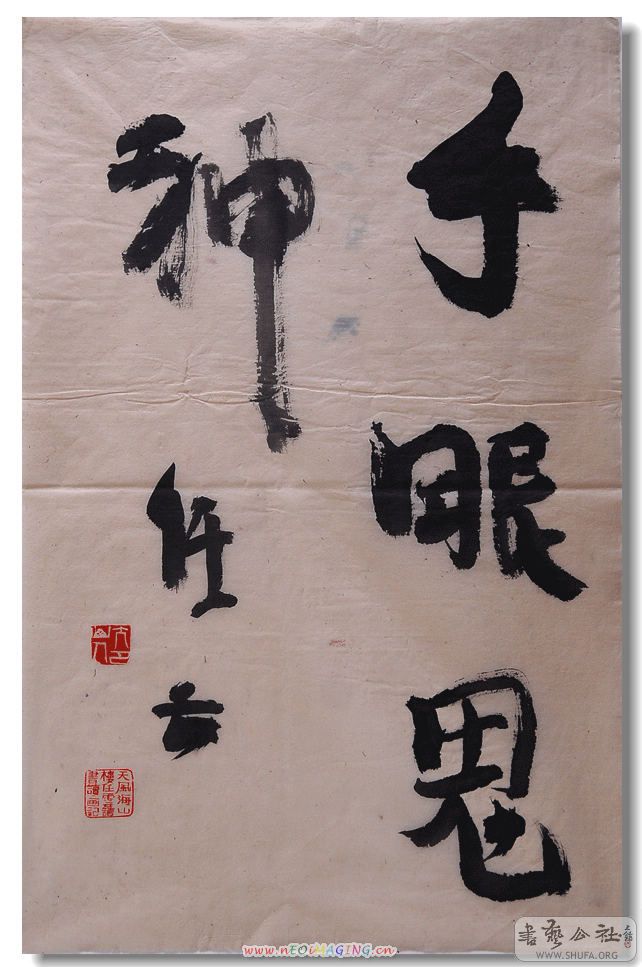 手眼鬼
神任云
天風海山
樓任雲讀
書讀畫記
書藝公社
WWW.SHUFA.ORG
www.nEOiMAGING.cn